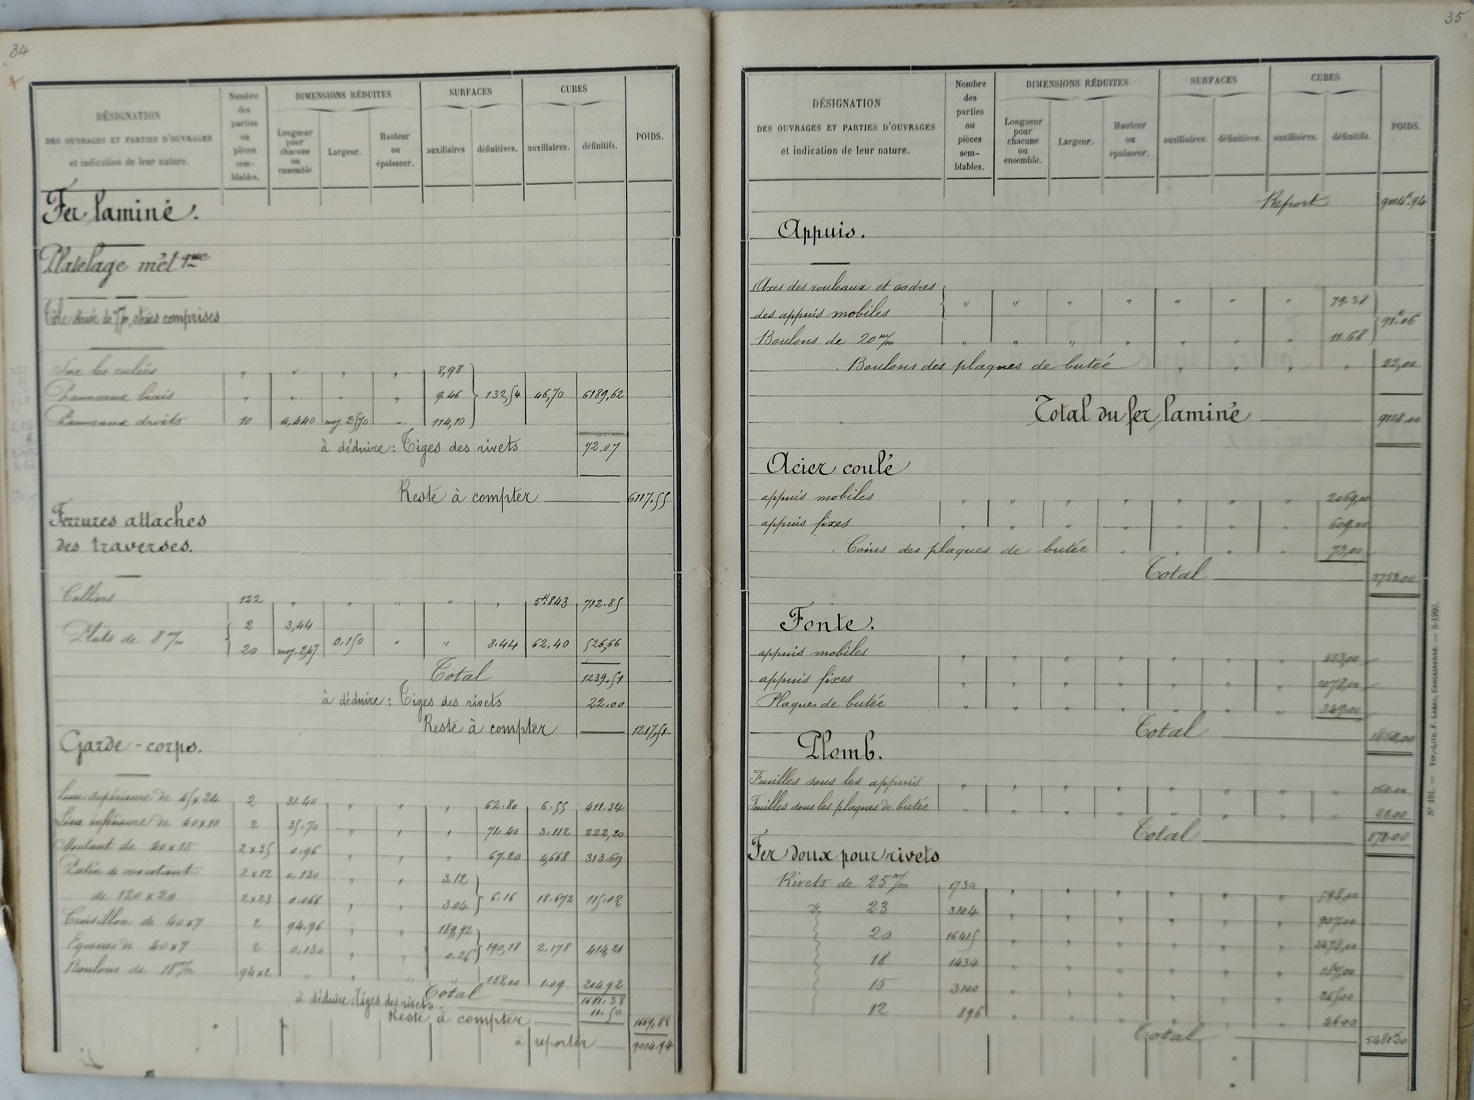 34
DÉSIGNATION
DES OUVRAGES ET PARTIES D'OUVRAGES
et indication de leur nature.
Nombre des parties ou pièces sem-blables.
DIMENSIONS RÉDUITES
Longueur pour chacune ou ensemble
Largeur.
Hauteur ou épaisseur.
SURFACES
auxiliaires
définitives.
CUBES
auxiliaires.
définitifs.
POIDS.
Fer laminé.
Platelage mét.que
Tôle striée de 7m/m, stries comprises
Sur les culées " " " " 8,98
Panneaux biais " " " " 9.46 132,54 46,70 6189,62
Panneaux droits 10 4,440 moy 2,570 " 114,10
à déduire: Tiges des rivets 72.07
Reste à compter 6117.55
Ferrures attaches
des traverses.
Colliers 122 " " " " " 5k843 712.85
Plats de 8 m/m 2 3,44
20 moy. 2,47 0,150 " " 8.44 62.40 526,66
Total 1239.51
à déduire: Tiges des rivets 22.00
Reste à compter 1217,51
Garde-corps.
Lisse supérieure de 45x24 2 31.40 " " " 62.80 6.55 411.34
Lisse inférieure de 40x10 2 35.70 " " " 71.40 3.112 222,20
Montant de 40x15 2x35 0.96 " " " 67.20 4,668 313.69
Patin de montant 2x12 0.130 " " 3.12
de 120x20 2x23 0.066 " " 3.04 6.16 18.672 115.02
Croisillon de 40x7 2 94.96 " " 189,92
Equerres de 40x7 2 0.130 " " 0.26 190,18 2.178 414,21
Boulons de 18m/m 94x2 " " " " 188,00 1.09 204.92
Total 1681.38
à déduire: Tiges des rivets 11.50
Reste à compter 1669,88
à reporter 9004.94
35
DÉSIGNATION
DES OUVRAGES ET PARTIES D'OUVRAGES
et indication de leur nature.
Nombre des parties ou pièces sem-blables.
DIMENSIONS RÉDUITES
Longueur pour chacune ou ensemble.
Largeur.
Hauteur ou épaisseur.
SURFACES
auxiliaires.
définitives.
CUBES
auxiliaires.
définitifs.
POIDS.
Report 9004k.94
Appuis.
Axes des rouleaux et cadres
des appuis mobiles " " " " " " " 79.38
Boulons de 20 m/m " " " " " " " 11.68 91k.06
Boulons des plaques de butée " " " " 22,00
Total du fer laminé 9118.00
Acier coulé
appuis mobiles " " " " " " " 2069,00
appuis fixes " " " " " " " 609.00
Coins des plaques de butée " " " " 73,00
Total 2758.00
Fonte.
appuis mobiles " " " " " " " 433,00
appuis fixes " " " " " " " 1078,00
Plaques de butée " " " " " " " 349.00
Total 1850,00
Plomb.
Feuilles sous les appuis " " " " " " " 150.00
Feuilles sous les plaques de butée " " " " " " " 28.00
Total 178.00
Fer doux pour rivets
Rivets de 25 m/m 1730 " " " " " " 598,00
d° 23 3104 " " " " " " 907.00
20 16415 " " " " " " 3478,00
18 1434 " " " " " " 187.00
15 3100 " " " " " " 265.00
12 896 " " " " " " 46.00
Total 5481k00